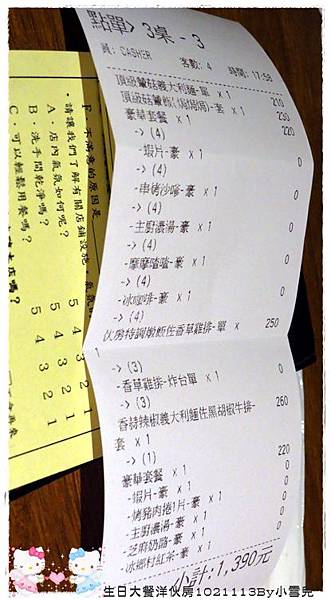 點單> 3桌 - 3
員: CASHER 客數: 4 時間: 17:58
頂級蕈菇義大利麵-單 x 1 210
頂級菇蕈粉(焗焗焗)-套 x 1 230
豪華套餐 x 1 220
-> (4)
-蝦片-豪 x 1 0
-> (4)
-串烤沙嗲-豪 x 1 0
-> (4)
-主廚濃湯-豪 x 1 0
-> (4)
-摩摩喳喳-豪 x 1 0
-> (4)
-冰咖啡-豪 x 1 0
伙房特調燉飯佐香草雞排-單 x 250
1
-> (3)
-香草雞排-炸台單 x 1 0
-> (3)
香蒜辣椒義大利麵佐黑胡椒牛排- 260
套 x 1
-> (1)
豪華套餐 x 1 220
-蝦片-豪 x 1 0
-烤豬肉捲1片-豪 x 1 0
-主廚濃湯-豪 x 1 0
-芝麻奶酪-豪 x 1 0
-冰鄉村紅茶-豪 x 1 0
小計:1,390元
F·不滿意的原因是
·請讓我們了解有關店鋪設施、氣氛
A·店內氣氛如何呢? 5 4 3 2 1
B·洗手間乾淨嗎? 5 4 3 2 1
C·可以輕鬆用餐嗎?
本店嗎?
生日大餐洋伙房1021113By小雪兒